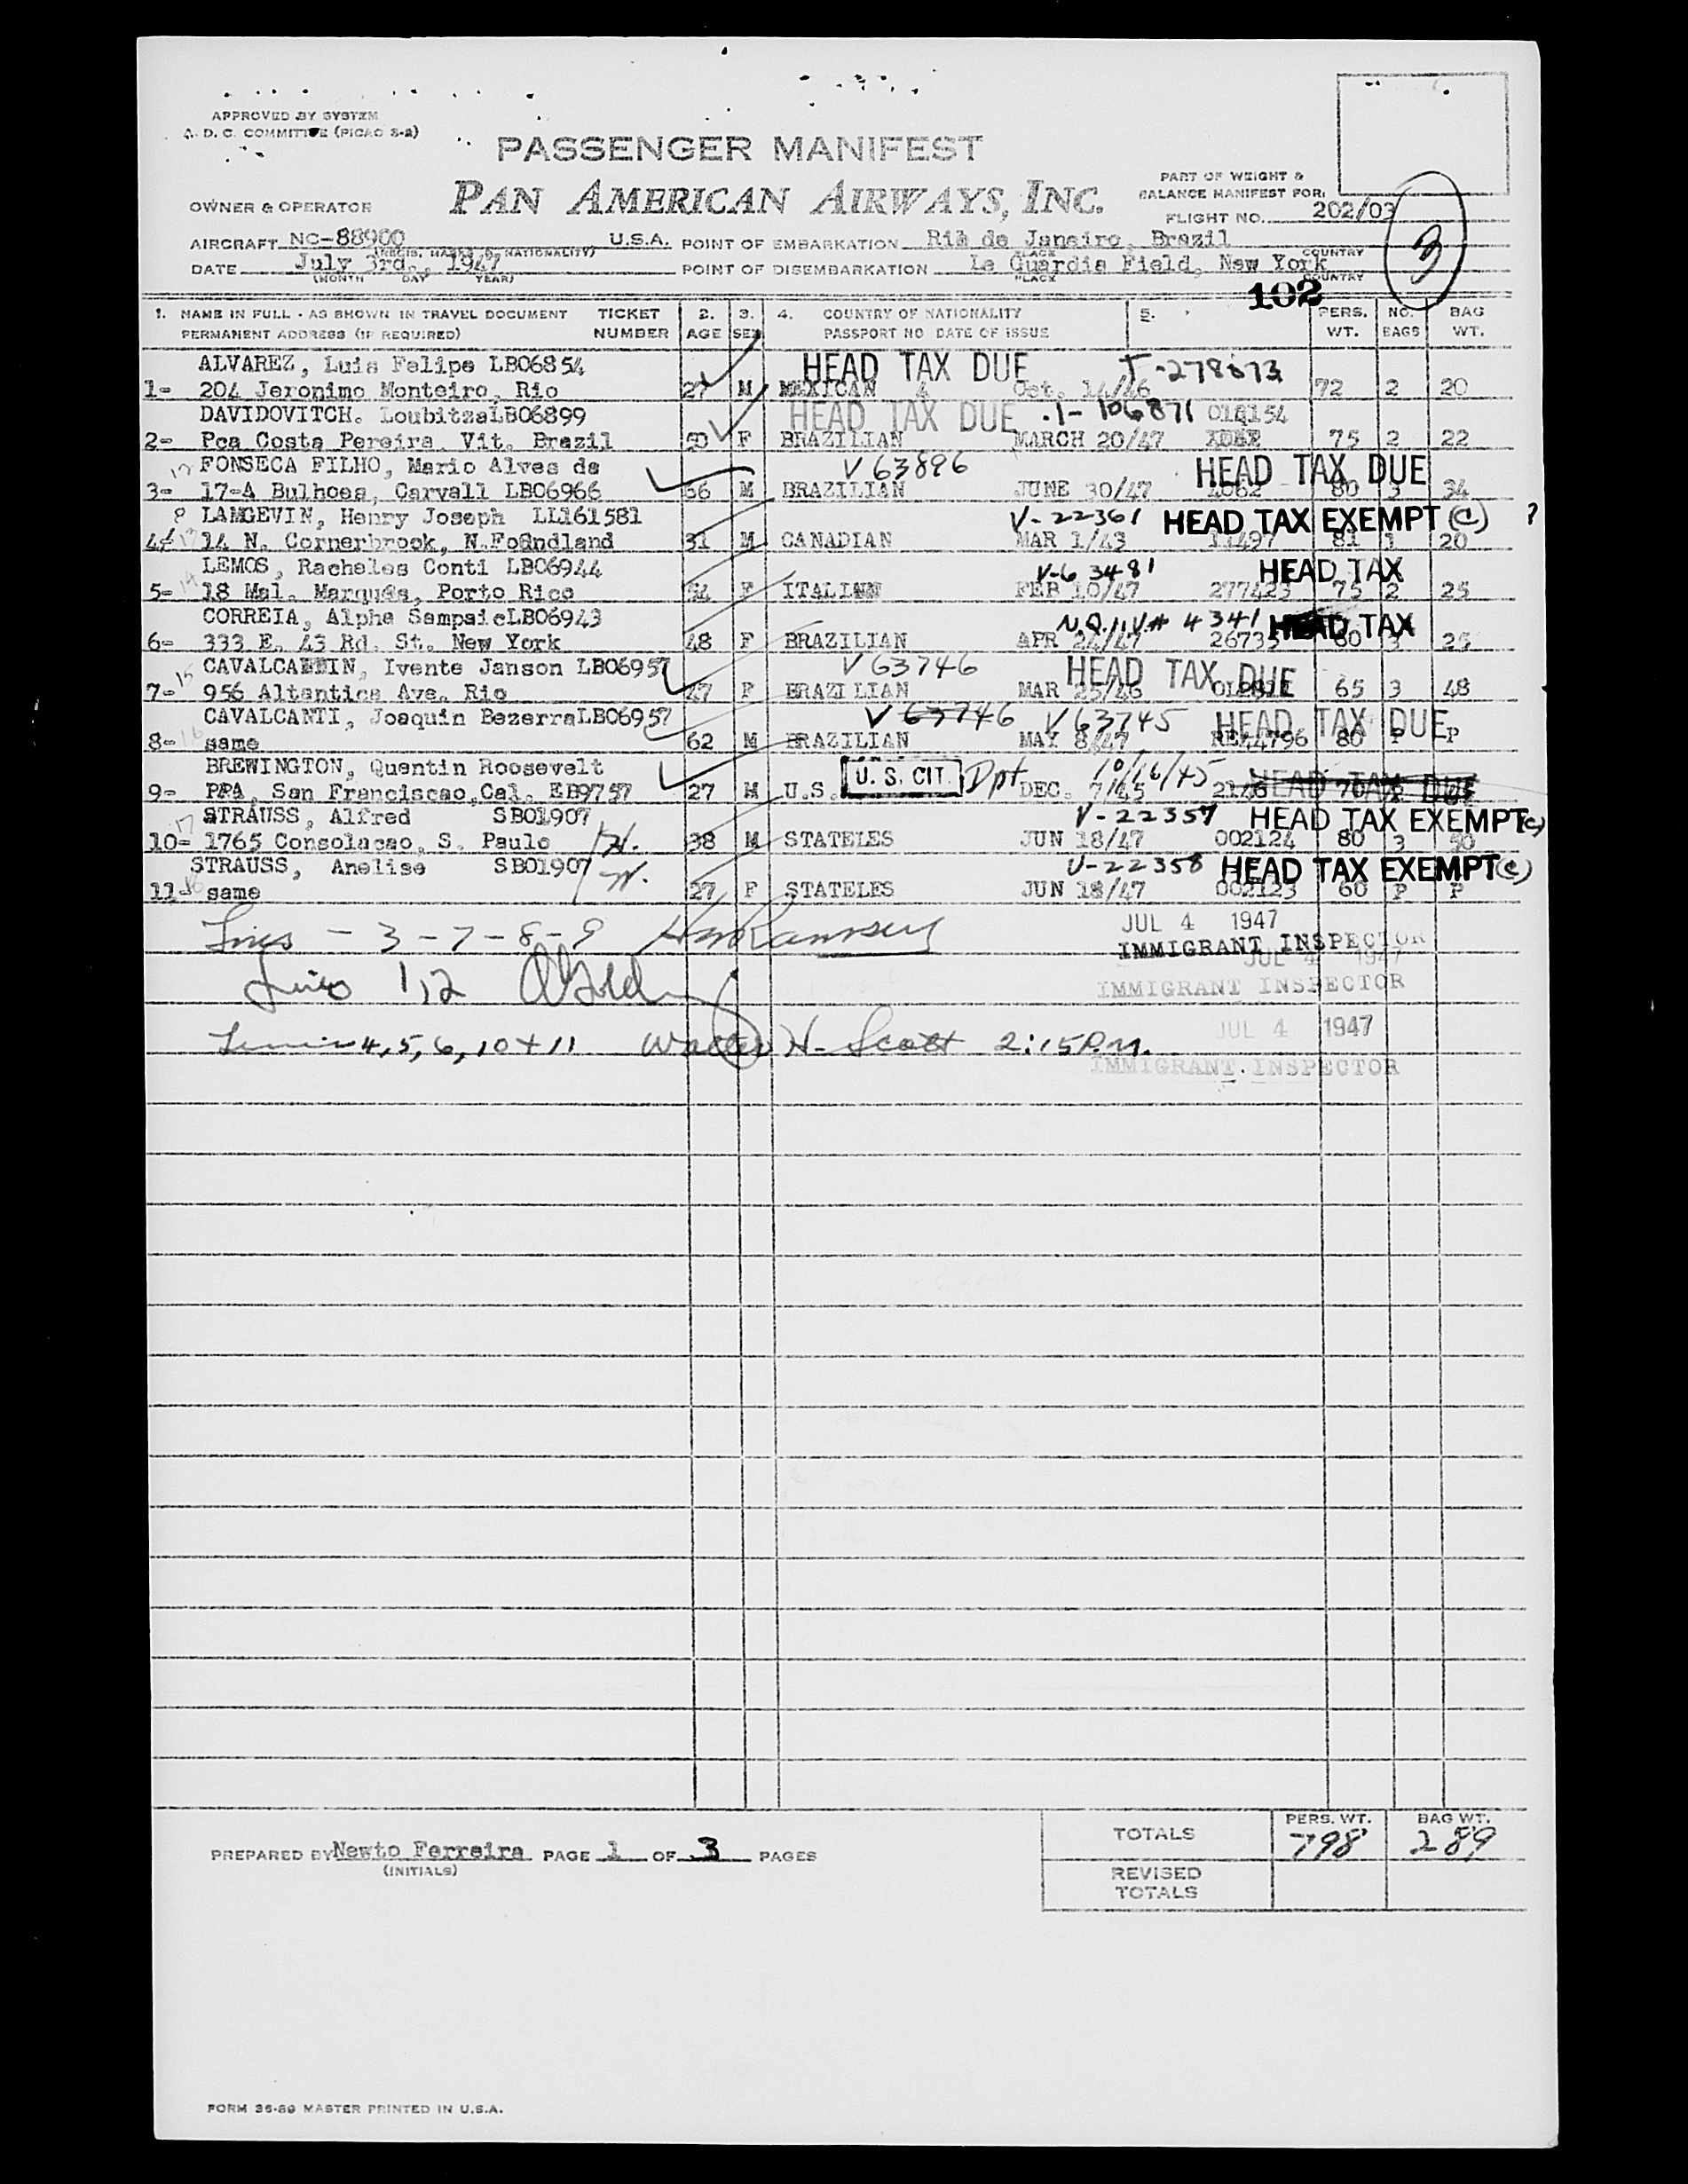 APPROVED BY SYSTEM
A. D. C. COMMITTEE (PICAO 8-2)
PASSENGER MANIFEST
PAN AMERICAN AIRWAYS, INC.
PART OF WEIGHT &
BALANCE MANIFEST FOR:
OWNER & OPERATOR
FLIGHT NO. 202/03
3
AIRCRAFT NC-88900 U.S.A. POINT OF EMBARKATION Rio de Janeiro, Brazil
(REGIS. MARKS & NATIONALITY) PLACE COUNTRY
DATE July 3rd., 1947 POINT OF DISEMBARKATION La Guardia Field, New York
(MONTH DAY YEAR) PLACE COUNTRY
102
1. NAME IN FULL - AS SHOWN IN TRAVEL DOCUMENT TICKET 2. 3. 4. COUNTRY OF NATIONALITY 5. PERS. NO. BAG
PERMANENT ADDRESS (IF REQUIRED) NUMBER AGE SEX PASSPORT NO DATE OF ISSUE WT. BAGS WT.
ALVAREZ, Luis Felipe LB06854 HEAD TAX DUE
1- 204 Jeronimo Monteiro, Rio 27 M MEXICAN 4 Oct. 14/46 72 2 20
DAVIDOVITCH. LoubitzaLB06899 HEAD TAX DUE I-106871 018154
2- Pca Costa Pereira. Vit. Brazil 50 F BRAZILIAN MARCH 20/47 75 2 22
FONSECA FILHO, Mario Alves da V 63896 HEAD TAX DUE
3- 17-A Bulhoes, Carvall LB06966 56 M BRAZILIAN JUNE 30/47 4062 80 3 34
LANGEVIN, Henry Joseph LL161581 V-22361 HEAD TAX EXEMPT (C) ?
4- 14 N. Cornerbrook, N.FoGndland 31 M CANADIAN MAR 1/43 11497 81 1 20
LEMOS, Racheles Conti LB06944 V-63481 HEAD TAX
5- 18 Mal. Marques, Porto Rico 54 F ITALIAN FEB 10/47 277423 75 2 25
CORREIA, Alpha SampaioLB06943 N.Q.I.V.# 4341 HEAD TAX
6- 333 E. 43 Rd. St. New York 48 F BRAZILIAN APR 24/47 26735 80 3 25
15 CAVALCANTIN, Ivente Janson LB06957 V 63746 HEAD TAX DUE
7- 956 Altantica Ave. Rio 47 F BRAZILIAN MAR 25/46 65 3 48
16 CAVALCANTI, Joaquin BezerraLB06957 V 63746 V 63745 HEAD TAX DUE
8- same 62 M BRAZILIAN MAY 8/47 RE44796 80 P P
BREWINGTON, Quentin Roosevelt U. S. CIT. Dpt 10/16/45 HEAD TAX DUE
9- PPA, San Franciscao,Cal. EB9757 27 M U.S. DEC. 7/45 2146 70
17 STRAUSS, Alfred SB01907 V-22357 HEAD TAX EXEMPT(C)
10- 1765 Consolacao, S. Paulo H. 38 M STATELES JUN 18/47 002124 80 3 50
STRAUSS, Anelise SB01907 V-22358 HEAD TAX EXEMPT(C)
11- same 27 F STATELES JUN 18/47 002123 60 P P
Lines - 3-7-8-9 JUL 4 1947
IMMIGRANT INSPECTOR
JUL 4 1947
Lines 1,2 IMMIGRANT INSPECTOR
JUL 4 1947
Lines 4,5,6,10+11 Walter H. Scott 2:15 P.M.
IMMIGRANT INSPECTOR
TOTALS PERS. WT. 798 BAG WT. 289
PREPARED BY Newto Ferreira PAGE 1 OF 3 PAGES
(INITIALS)
REVISED
TOTALS
FORM 36-89 MASTER PRINTED IN U.S.A.